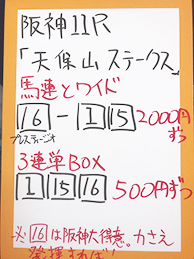 阪神11R
「天保山ステークス」
馬連とワイド
16-1 15 2000円
プレスティージオ ずつ
3連単BOX
1 15 16 500円ずつ
※16は阪神大得意。力さえ
発揮すれば!